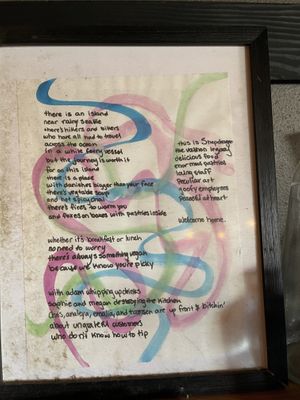 there is an island
near rainy seattle
there's hikers and bikers
who have all had to travel
across the ocean
in a white ferry vessel
but the journey is worth it
for on this island
there is a place
with danishes bigger than your face
there's vegetable soup
and hot spicy chai
there's fires to warm you
and faxes on boxes with pastries inside
whether it's breakfast or lunch
no need to worry
there's always something vegan
because we know you're picky
with adam whipping up drinks
sophie and megan destroying the kitchen
chris, analeya, and tamsen are up front & bitchin'
about ungrateful customers
who don't know how to tip
this is Snapdragon
the vashon legacy
delicious food
enormous pastries
loving staff
peculiar art
goofy employees
peaceful at heart
welcome home.